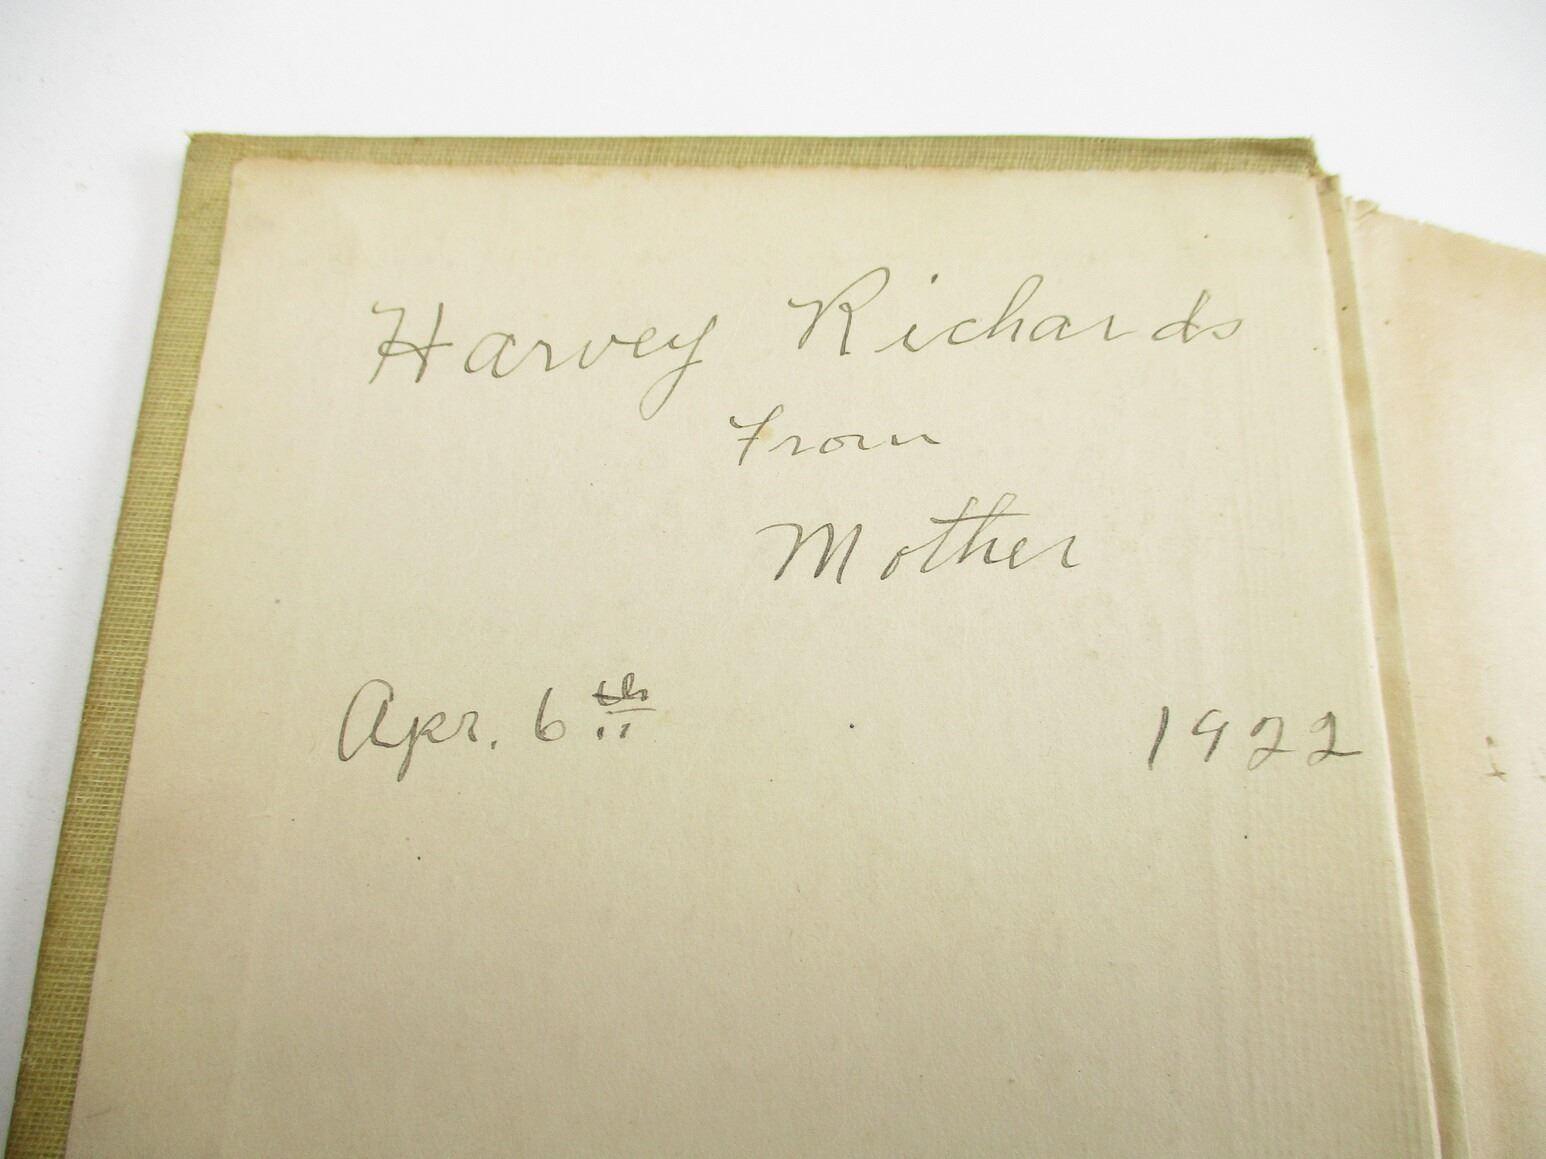 Harvey Richards
From
Mother
Apr. 6th 1922